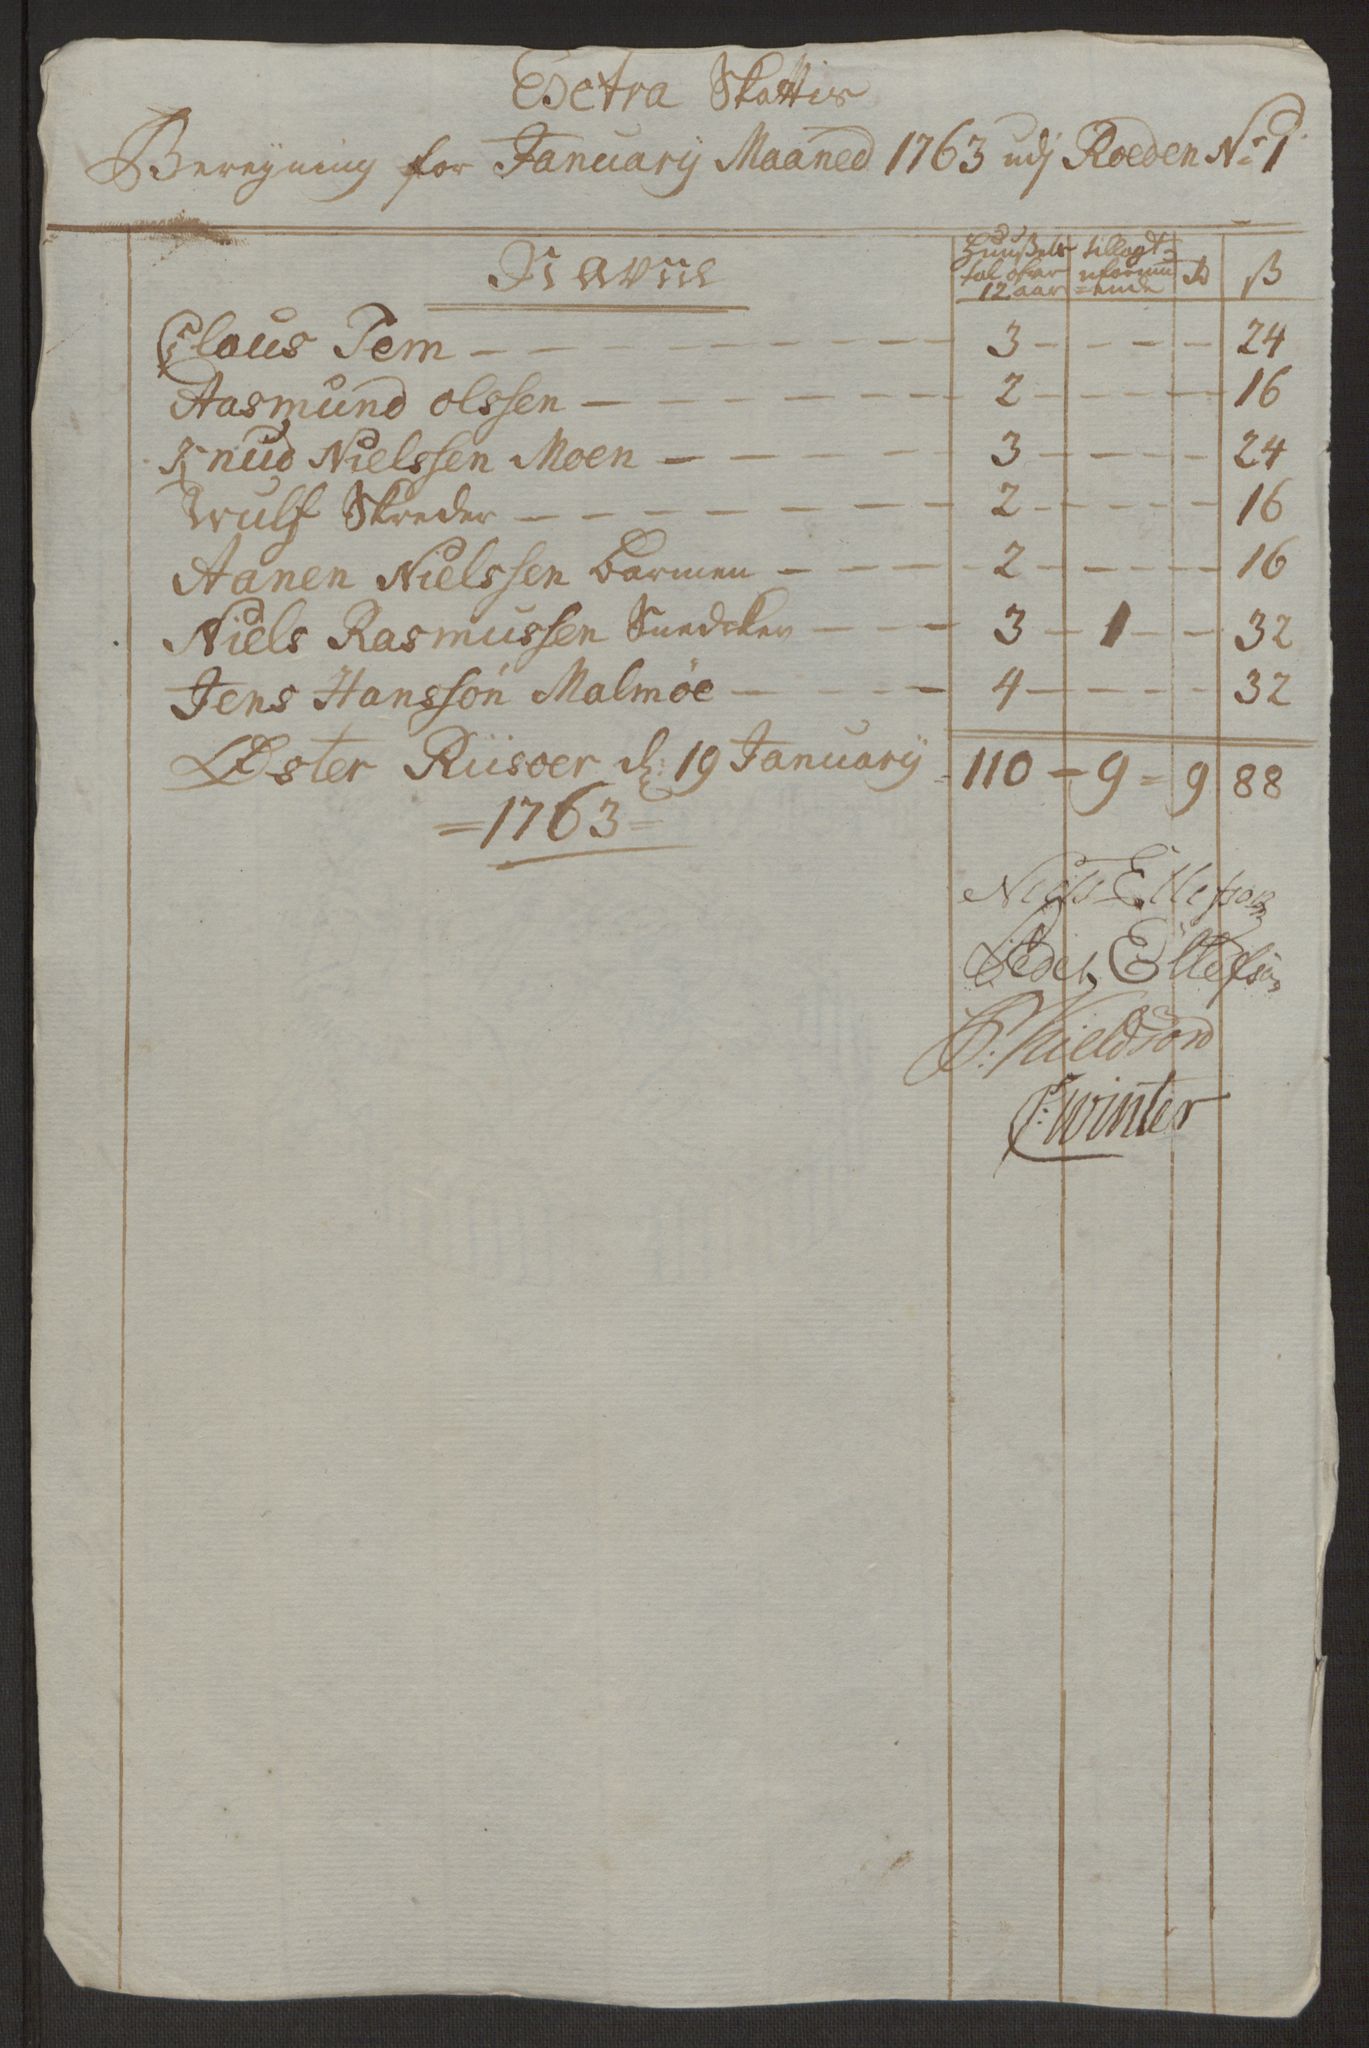 Extra Skattis
Bereigning for January Maaned 1763 udj Roeden No 1
Navne
Huußets tal over 12 aar
tillagt uformu=ende
ß
Claus Tem — 3 — 24
Aasmund olssen — 2 — 16
Knud Nielssen Moen — 3 — 24
Wulf Skreder — 2 — 16
Aanen Nielssen barmen — 2 — 16
Niels Rasmussen Snedcker — 3 — 1 — 32
Jens Hanssøn Malmøe — 4 — 32
Øster Riisoer d: 19 January 110 — 9 = 9 88
=1763=
Niels Ellefsøn
Peder Ellefsøn
P: Kieldsøn
C: Winter